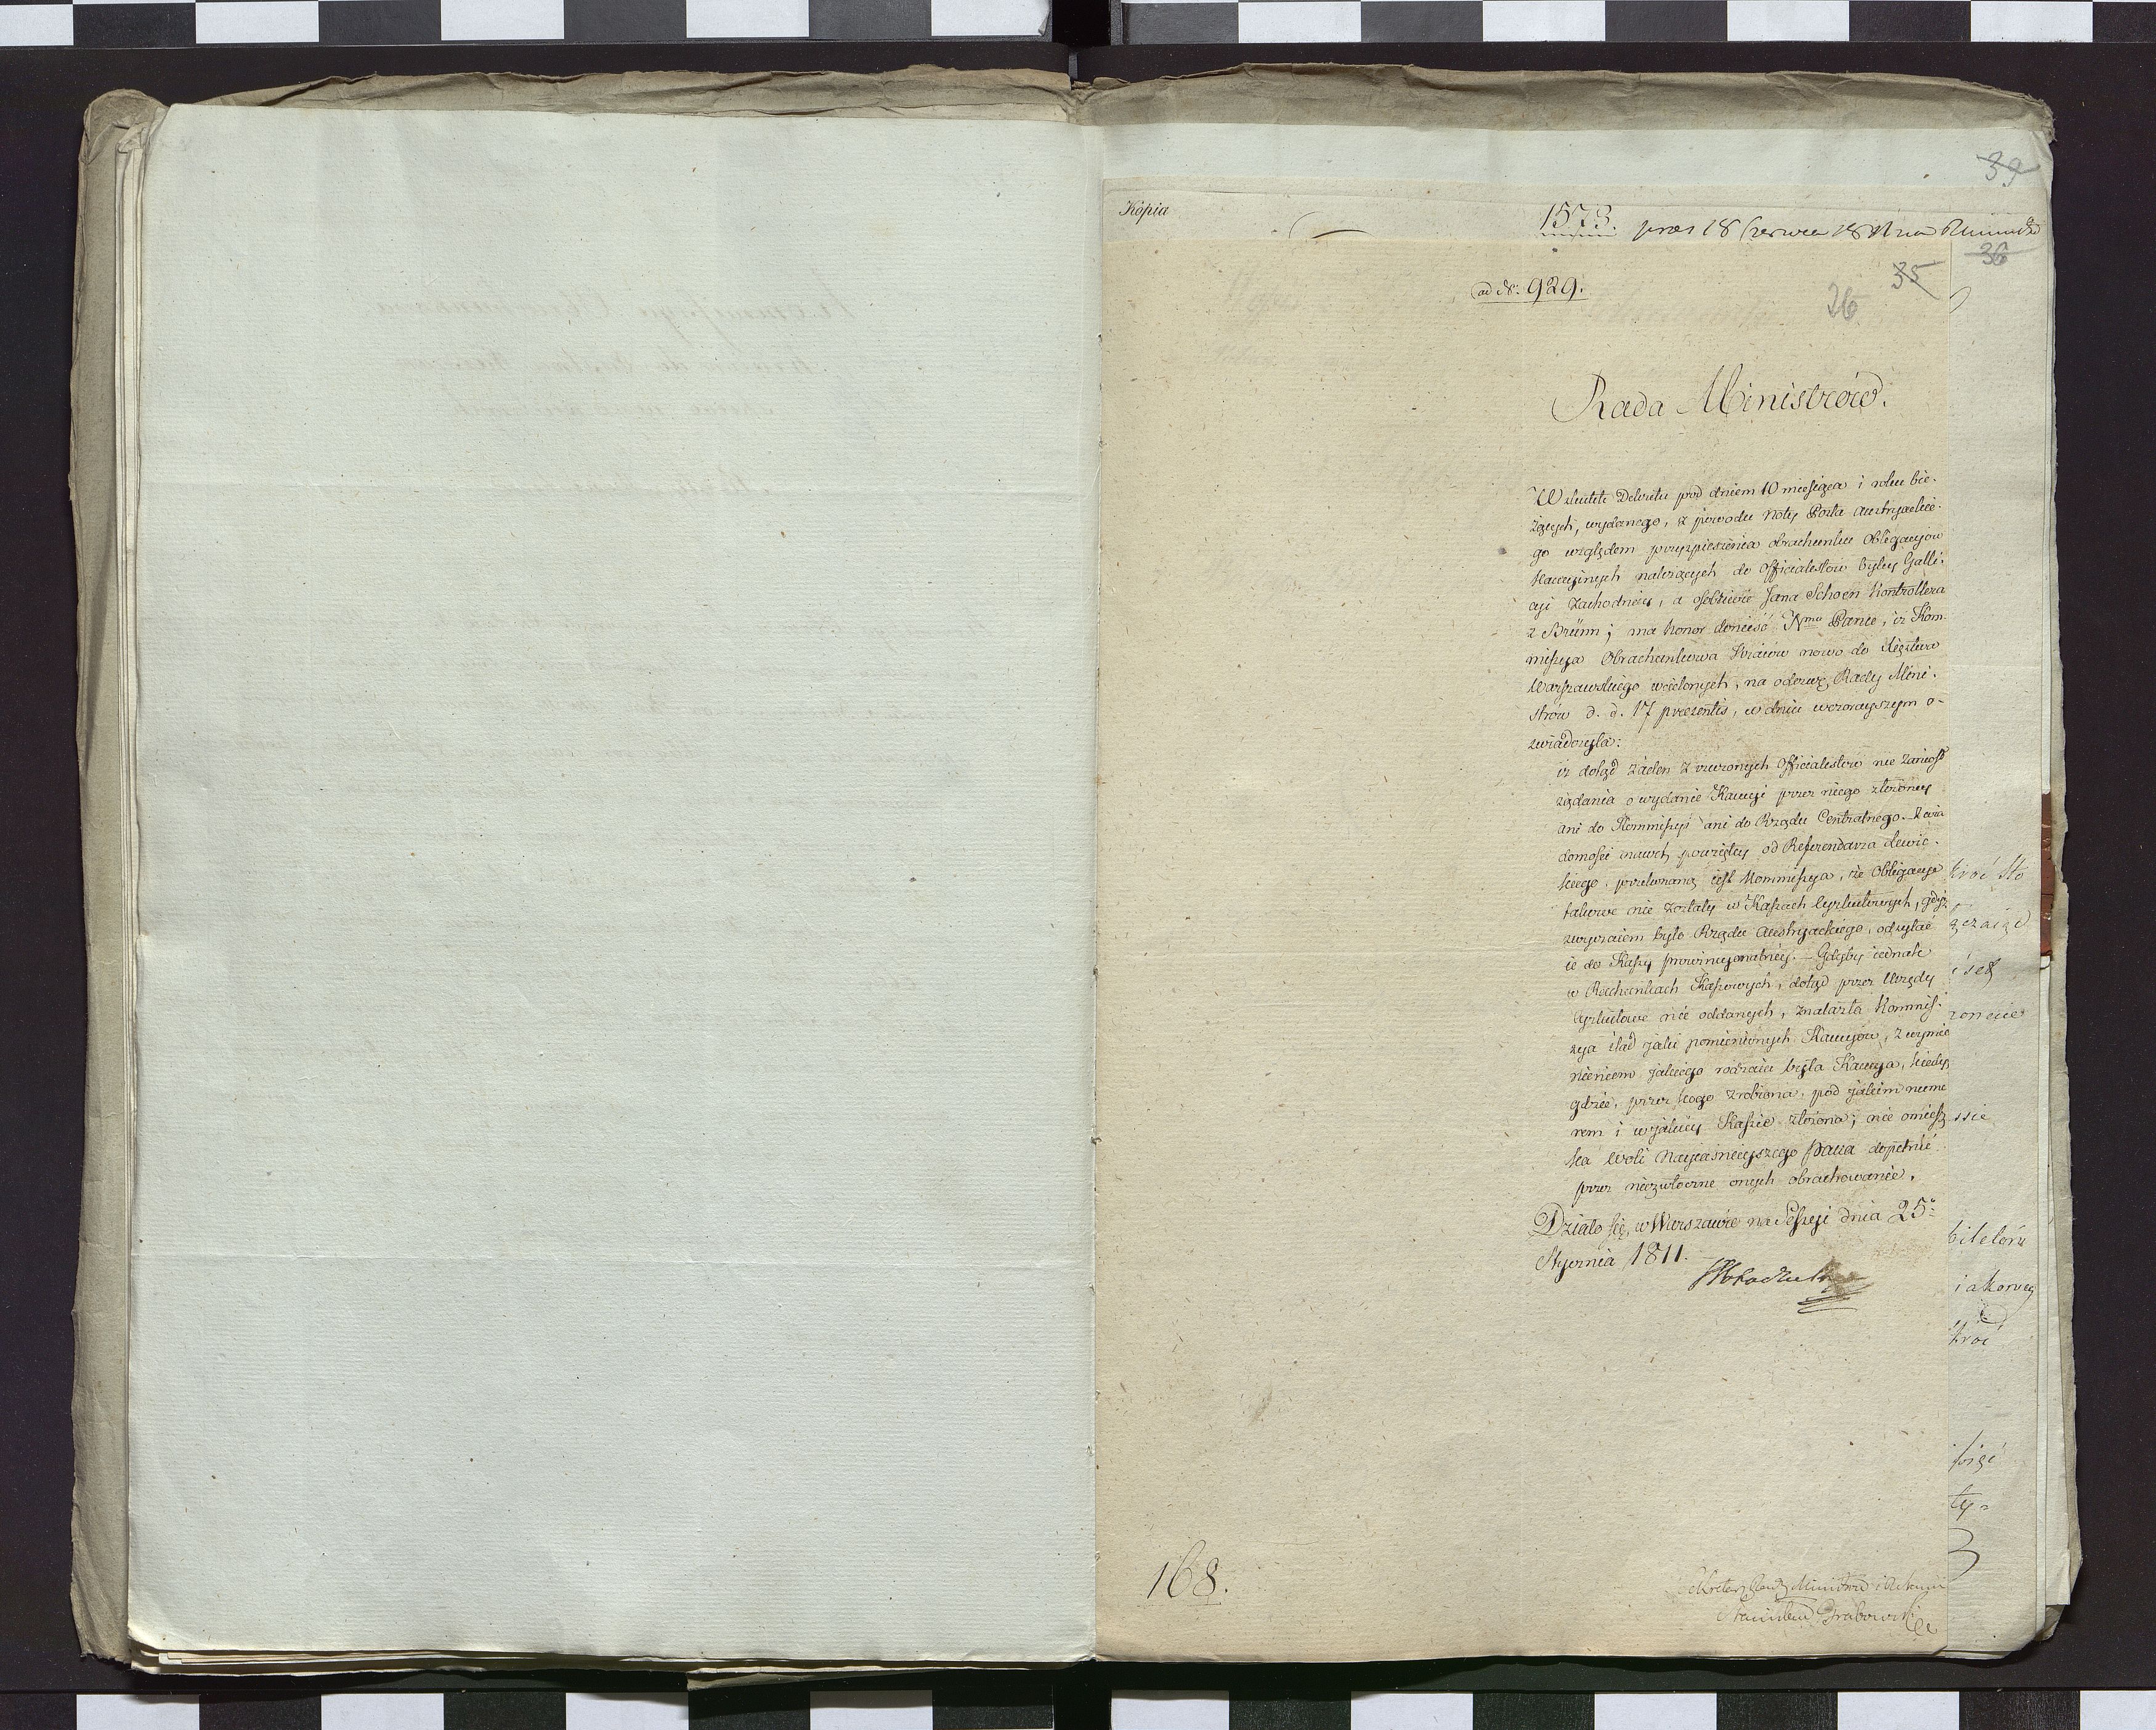 39
Kopia
1573. prez 18 Czerwca
36
35
ad N: 929.
26
Rada Ministrów.
W skutek Dekretu pod dniem 10 miesiąca i roku bie-
żących, wydanego, z powodu Noty Posła Austryackie-
go względem przyspieszenia obrachunku Obligacyiow
kaucyinych należących do Officialistow byłey Galli-
cyi Zachodniey, a osobliwie Jana Schoen Kontrollera
z Brünn; ma honor donieść Nmu Panie, iż Kom-
missya Obrachunkowa Kraiow nowo do Xięztwa
Warszawskiego wcielonych, na odezwę Rady Mini-
strow d. d. 17 presentis, w dniu wczorayszym o-
świadczyła:
iż dotąd żaden z rzeczonych Officialistow nie zaniosł
żądania o wydanie Kaucyi przez niego złożoney
ani do Kommissyi ani do Rządu Centralnego. Z wia
domości nawet powziętey od Referendarza Lewic-
kiego, przekonaną iest Kommissya, że Obligacye
takowe nie zostały w Kassach Cyrkułowych, gdyż
zwyczaiem było Rządu Austryackiego, odsyłać
ie do Kassy prowincyonalney. – Gdyby iednak
w Rachunkach Kassowych, dotąd przez Urzędy
Cyrkułowe nie oddanych, znalazła Kommis-
sya ślad jaki pomienionych Kaucyiow, z wymie
nieniem jakiego rodzaiu była Kaucya, kiedy,
gdzie, przez kogo zrobiona, pod jakim nume
rem i w jakiey Kassie złożona; nie omiesz
ka woli Nayiaśnieyszego Pana dopełnić
przez niezwłoczne onych obrachowanie.
Działo się w Warszawie na Sessyi dnia 25o
Stycznia 1811.
168.
Sekretarz Rady Ministrow
Stanisław Grabowski